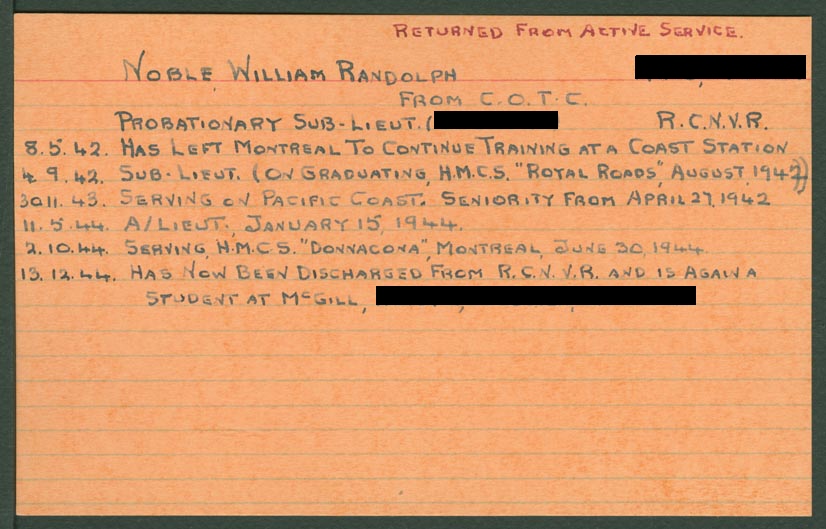 RETURNED FROM ACTIVE SERVICE.
NOBLE, WILLIAM RANDOLPH
FROM C.O.T.C.
PROBATIONARY SUB-LIEUT. ( R.C.N.V.R.
8.5.42. HAS LEFT MONTREAL TO CONTINUE TRAINING AT A COAST STATION
4.9.42. SUB-LIEUT. (ON GRADUATING, H.M.C.S. "ROYAL ROADS", AUGUST, 1942))
30.11.43. SERVING ON PACIFIC COAST. SENIORITY FROM APRIL 27, 1942
11.5.44. A/LIEUT., JANUARY 15, 1944.
2.10.44. SERVING, H.M.C.S. "DONNACONA", MONTREAL, JUNE 30, 1944.
13.12.44. HAS NOW BEEN DISCHARGED FROM R.C.N.V.R. AND IS AGAIN A
STUDENT AT MCGILL,